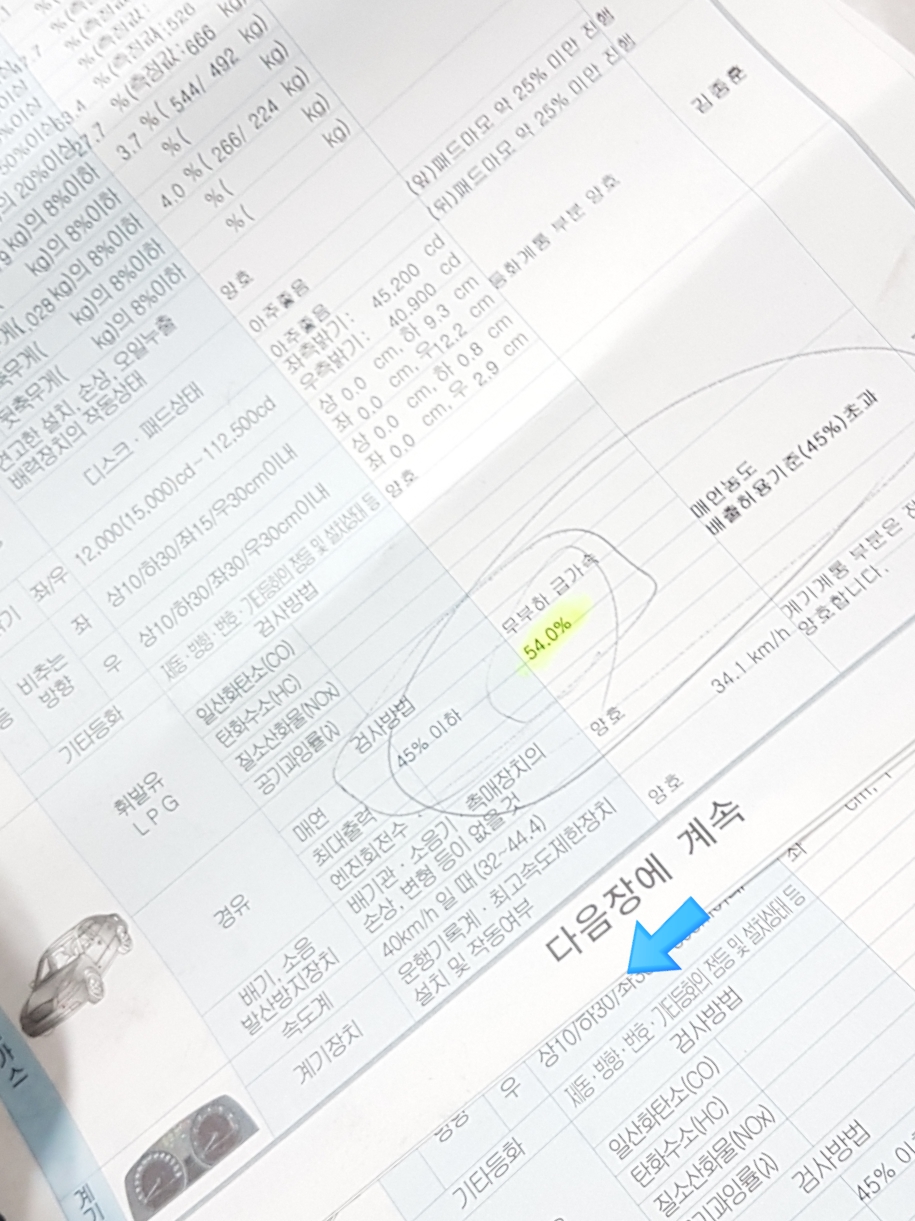 %(측정값:526
%(측정값:666 kg)
27.7
3.7 %( 544/ 492 kg)
%( kg)
4.0 %( 266/ 224 kg)
%( kg)
%(
의 20%이상
kg)의 8%이하
kg)의 8%이하
kg)의 8%이하
kg)의 8%이하
(앞)패드마모 약 25% 미만 진행
(뒤)패드마모 약 25% 미만 진행
김종훈
견고한 설치, 손상, 오일누출 양호
배력장치의 작동상태
디스크 · 패드상태
아주좋음
아주좋음
12,000(15,000)cd~112,500cd
좌측밝기: 45,200 cd
우측밝기: 40,900 cd
등화계통 부분 양호
좌/우
비추는
방향
좌 상10/하30/좌15/우30cm이내
상 0.0 cm, 하 9.3 cm
좌 0.0 cm, 우12.2 cm
우 상10/하30/좌30/우30cm이내
상 0.0 cm, 하 0.8 cm
좌 0.0 cm, 우 2.9 cm
기타등화 제동·방향·번호·기타등화의 점등 및 설치상태 등 양호
휘발유
LPG
검사방법
일산화탄소(CO)
탄화수소(HC)
질소산화물(NOx)
공기과잉률(λ)
경유
검사방법 무부하 급가속
매연 45% 이하 54.0%
매연농도
배출허용기준(45%)초과
최대출력
엔진회전수
배기, 소음
발산방지장치
배기관 · 소음기 · 촉매장치의
손상, 변형 등이 없을것
양호
속도계 40km/h 일 때 (32~44.4) 34.1 km/h
계기장치 운행기록계 · 최고속도제한장치
설치 및 작동여부
양호
계기계통 부분은
양호합니다.
다음장에 계속
가스
계기
좌
cm,
우 상10/하30/좌
기타등화 제동·방향·번호·기타등화의 점등 및 설치상태 등
검사방법
일산화탄소(CO)
탄화수소(HC)
질소산화물(NOx)
공기과잉률(λ)
검사방법
45% 이